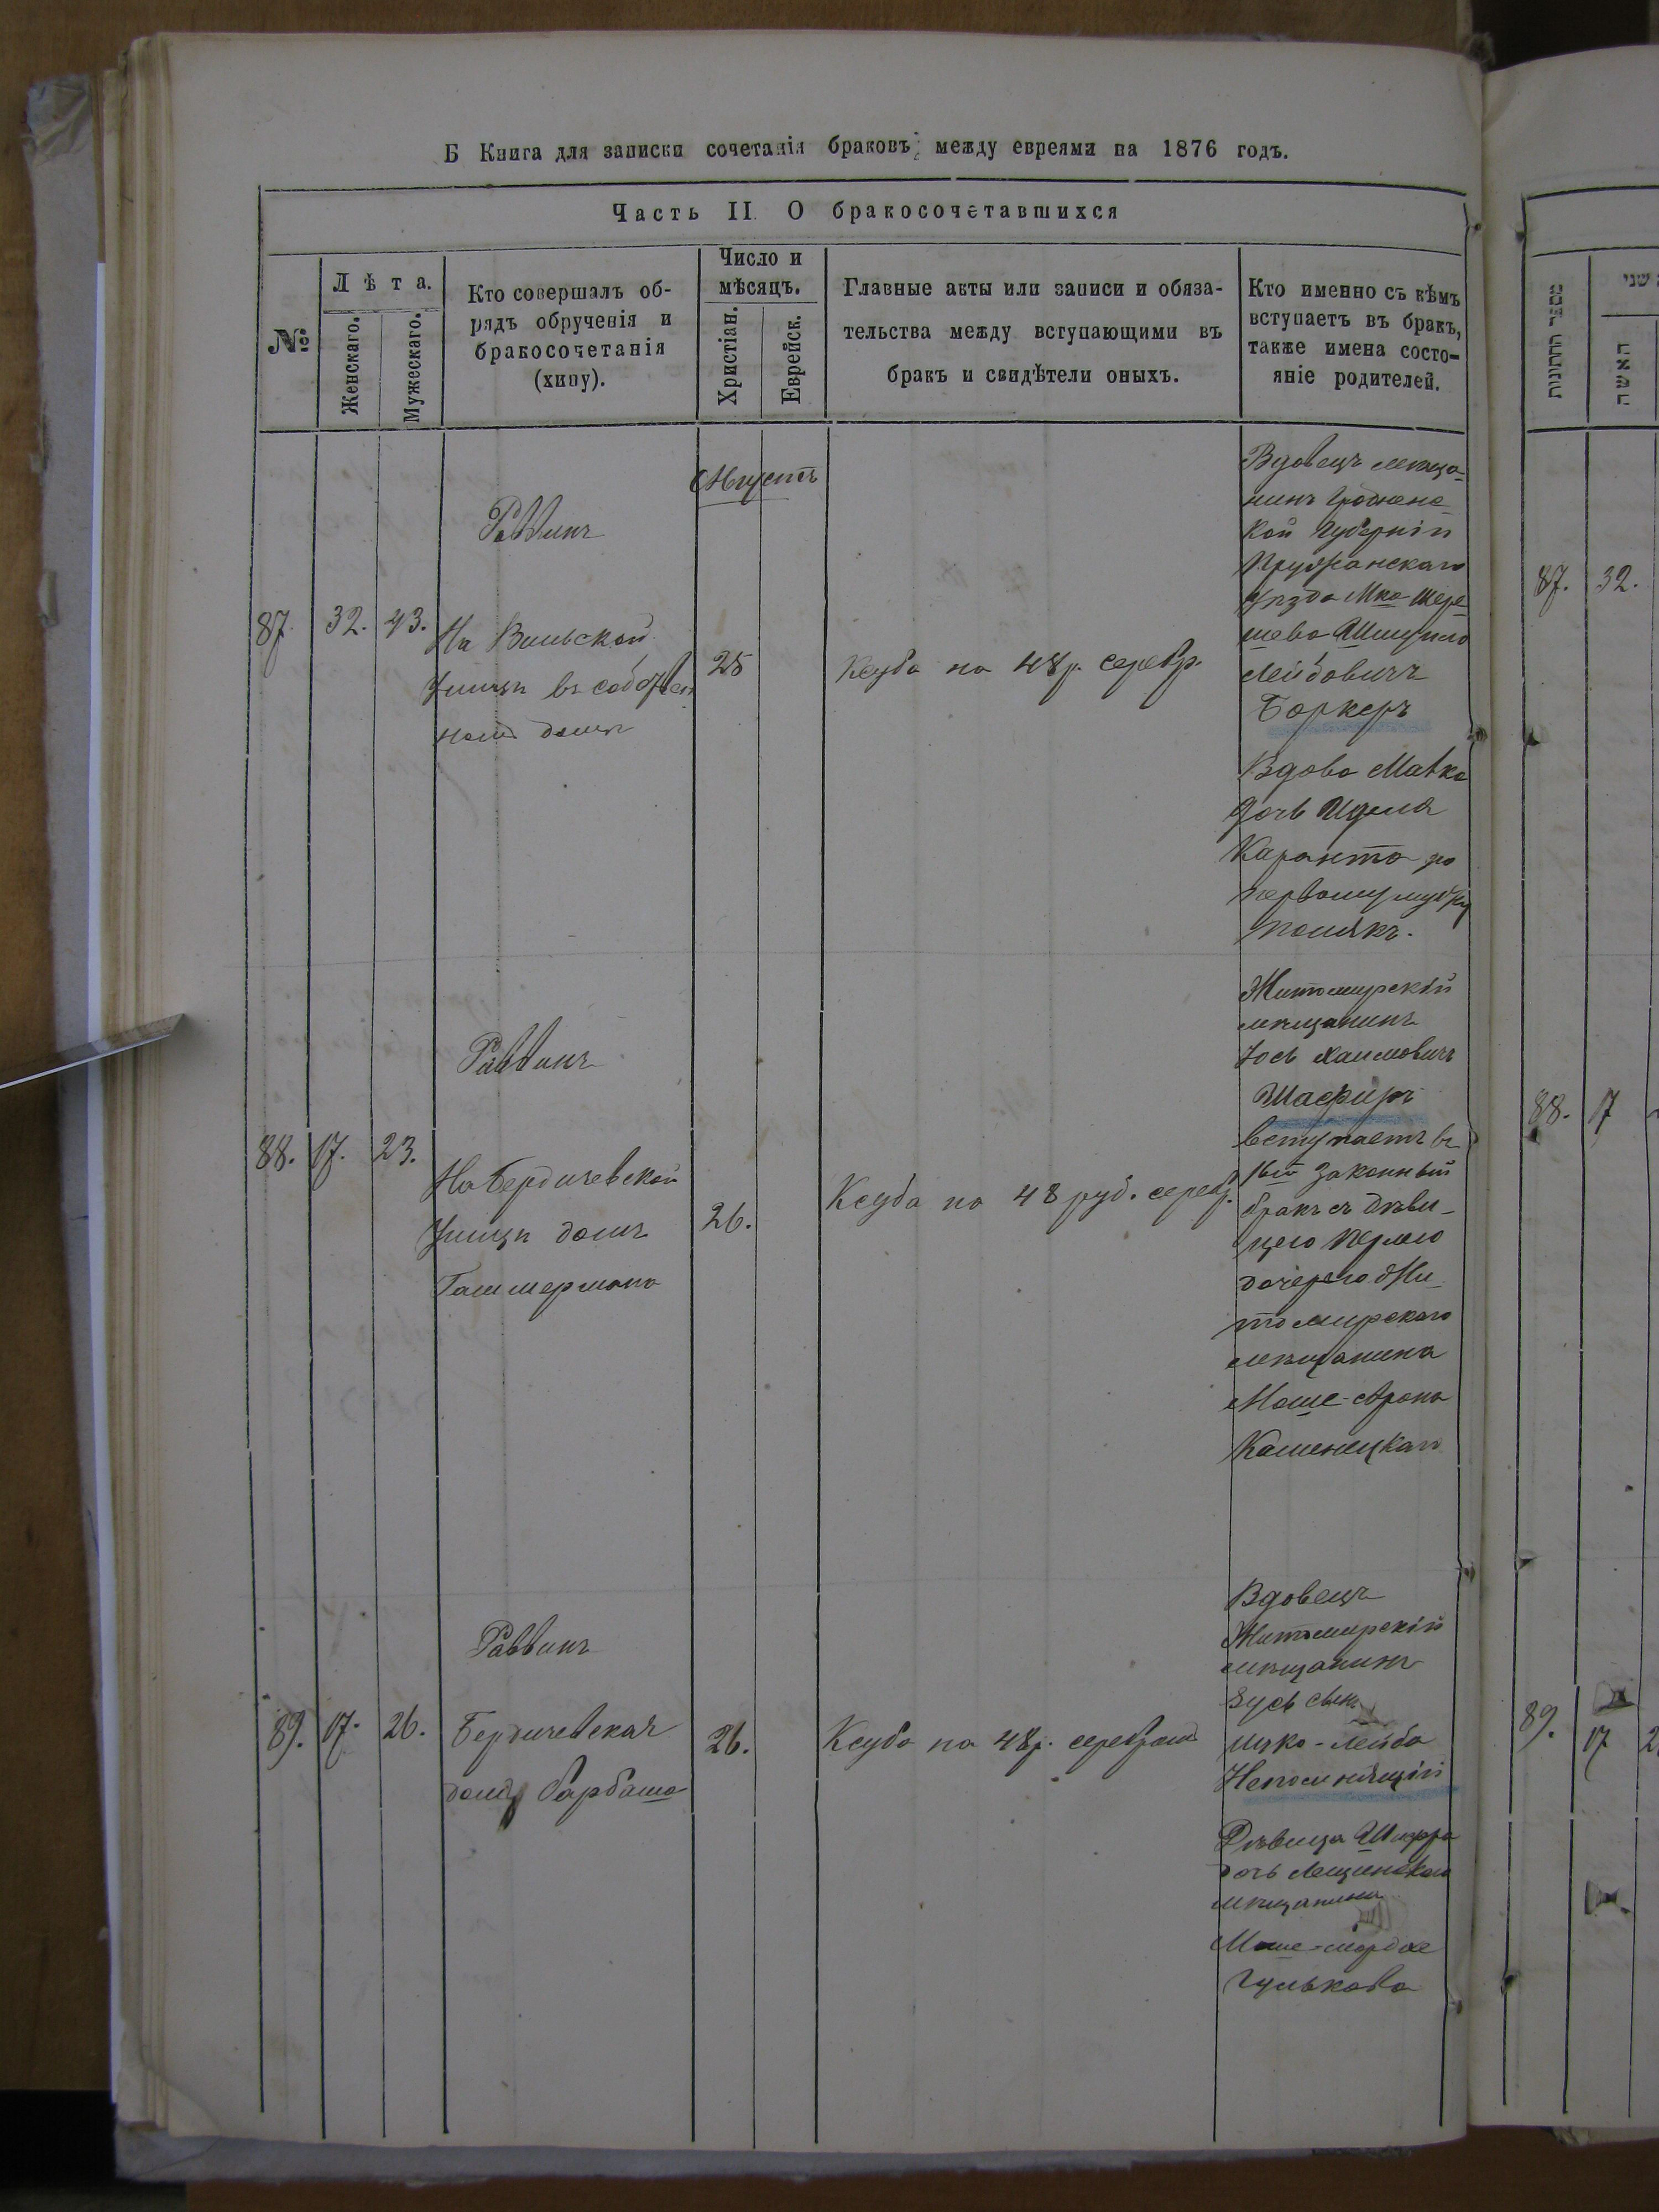 Б Книга для записки сочетанія браковъ между евреями на 1876 годъ.
Часть II О бракосочетавшихся
№
Лѣта.
Женскаго.
Мужескаго.
Кто совершалъ об-
рядъ обрученія и
бракосочетанія
(хипу).
Число и
мѣсяцъ.
Христіан.
Еврейск.
Главные акты или записи и обяза-
тельства между вступающими въ
бракъ и свидѣтели оныхъ.
Кто именно съ кѣмъ
вступаетъ въ бракъ,
также имена состо-
яніе родителей.
מספר החתונות
שני
האשה
Августъ
87
32.
43.
Раввинъ
На Вильской
Улицѣ въ собствен
номъ домѣ
25
Ксуба на 48 р. серебр.
Вдовецъ мѣща-
нинъ Гроднене
кой Губерніи
Пружанскаго
Уѣзда Мка Шере
шева Шмуило
Лейбовичъ
Боркеръ
Вдова Матка
дочь Иделя
Каранта по
первому мужу
Полякъ.
87.
32.
88.
17.
23.
Раввинъ
На Бердичевской
Улицѣ домъ
Гаммермана
26.
Ксуба на 48 руб. серебр.
Житомирскій
мѣщанинъ
Юсь Хаимовичъ
Шафиръ
вступаетъ въ
1ый законный
бракъ съ дѣви-
цею Перлею
дочерею Жи-
томирскаго
мѣщанина
Моше-Арона
Каменецкаго
88.
17
89.
17.
26.
Раввинъ
Бердичевская
домъ Барбаша
26.
Ксуба на 48 р. серебромъ
Вдовецъ
Житомирскій
мѣщанинъ
Зусь сынъ
Ицко-Лейба
Непомнящій
Дѣвица Шифра
дочь Лещинскаго
мѣщанина
Моше-Мордхе
Гулькова
89.
17
2